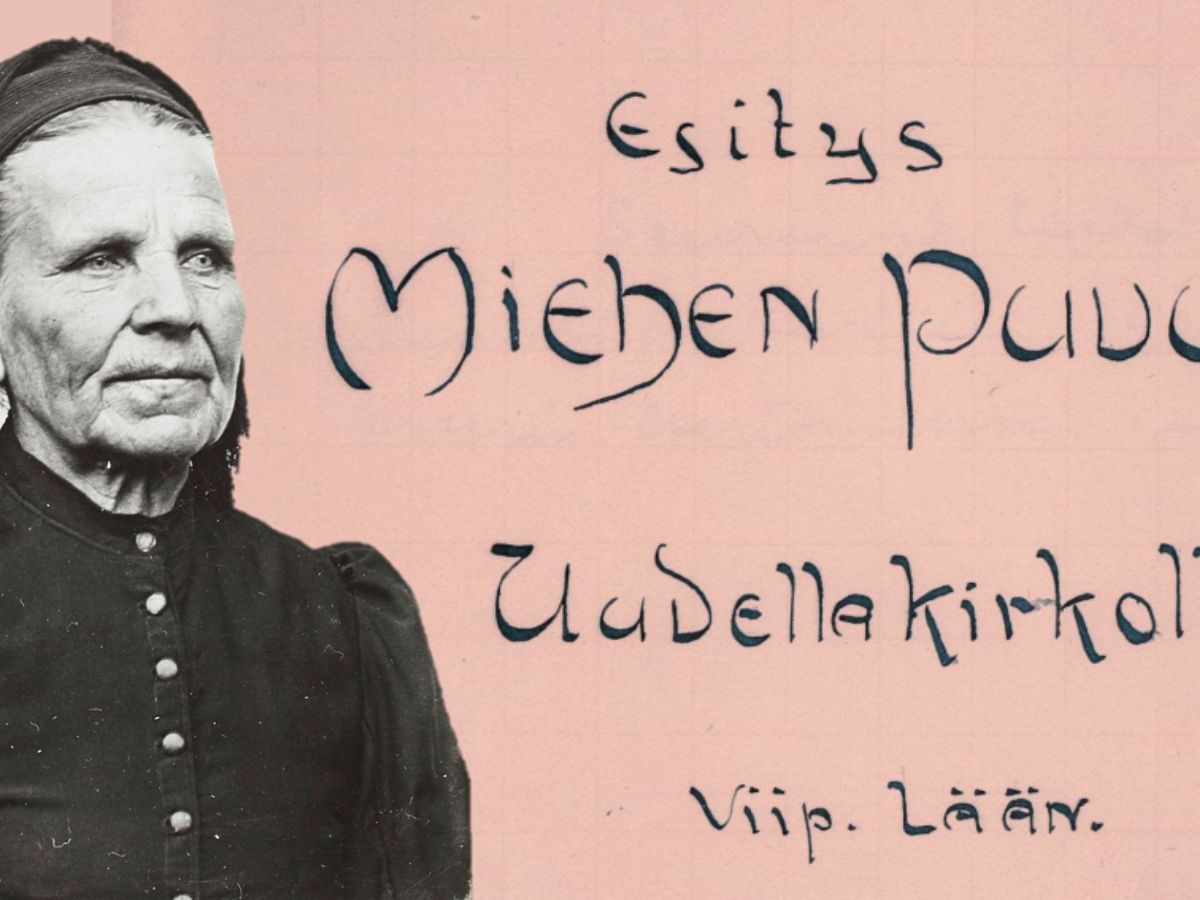 Esitys
Miehen puvu
Uudellakirkoll
Viip. Lään.